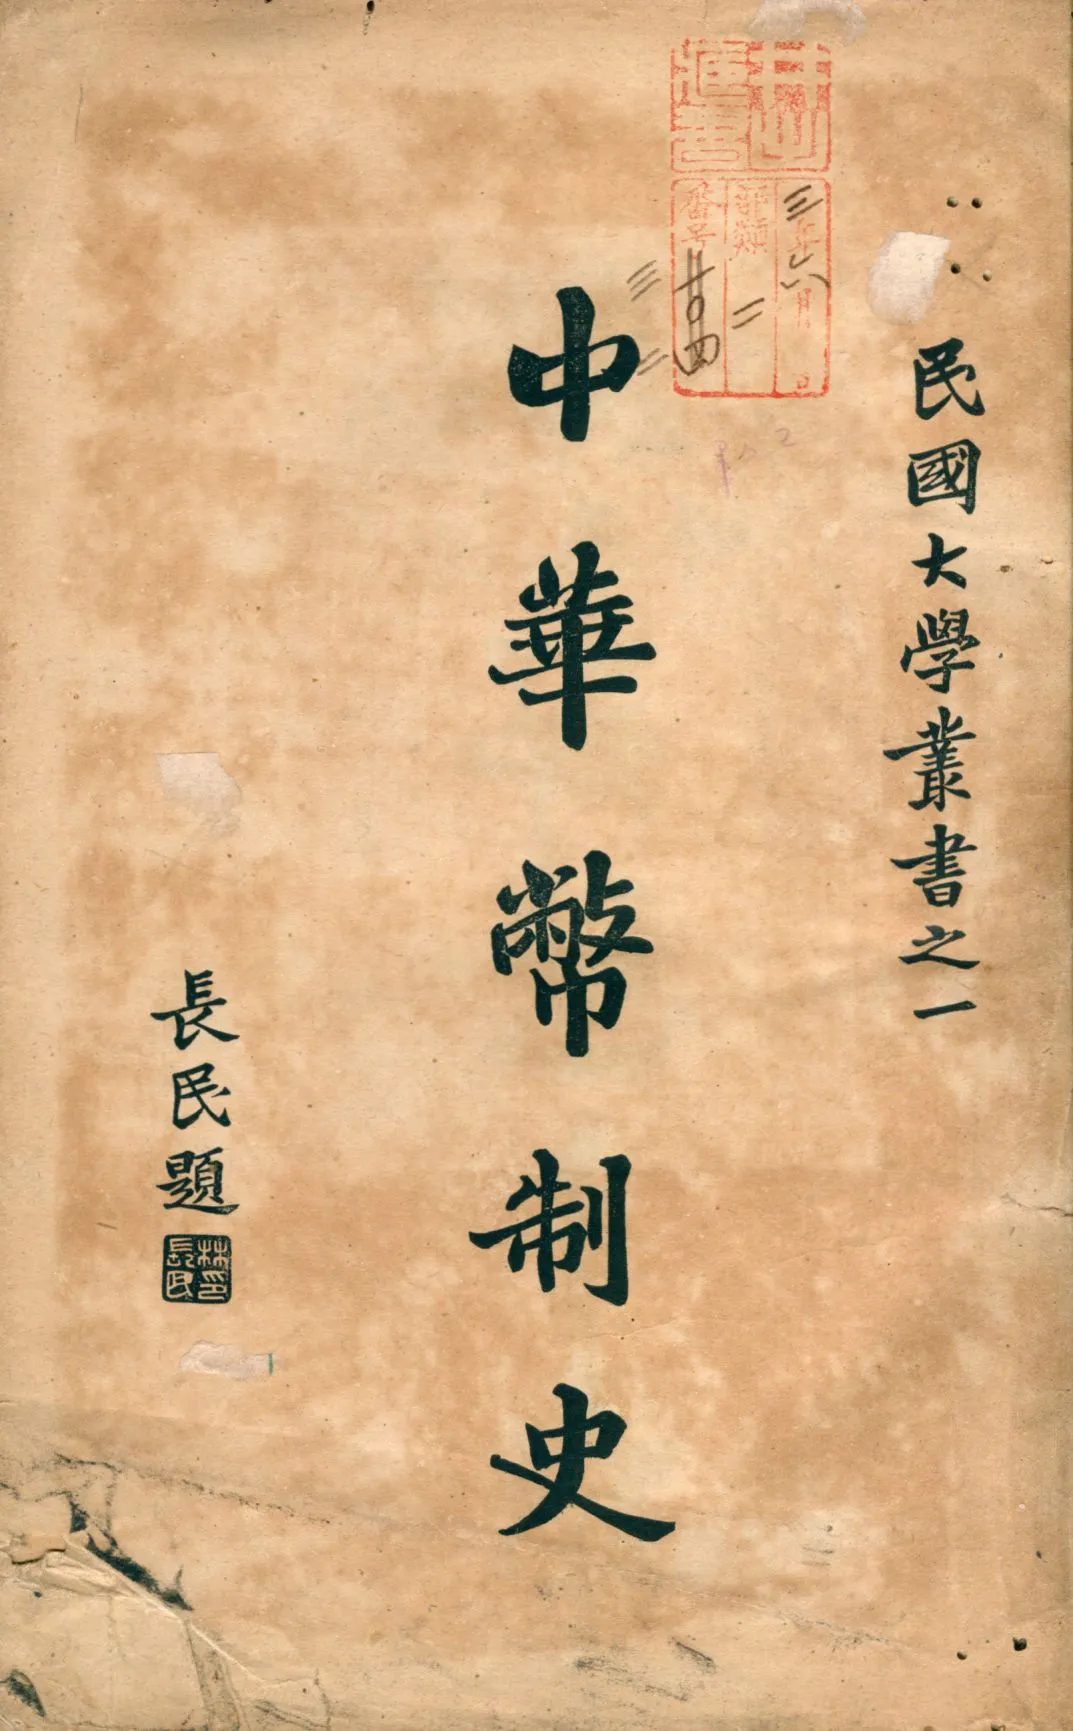 民國大學叢書之一
中華幣制史
長民題
林長民印
年 月 日
部類 二
番号